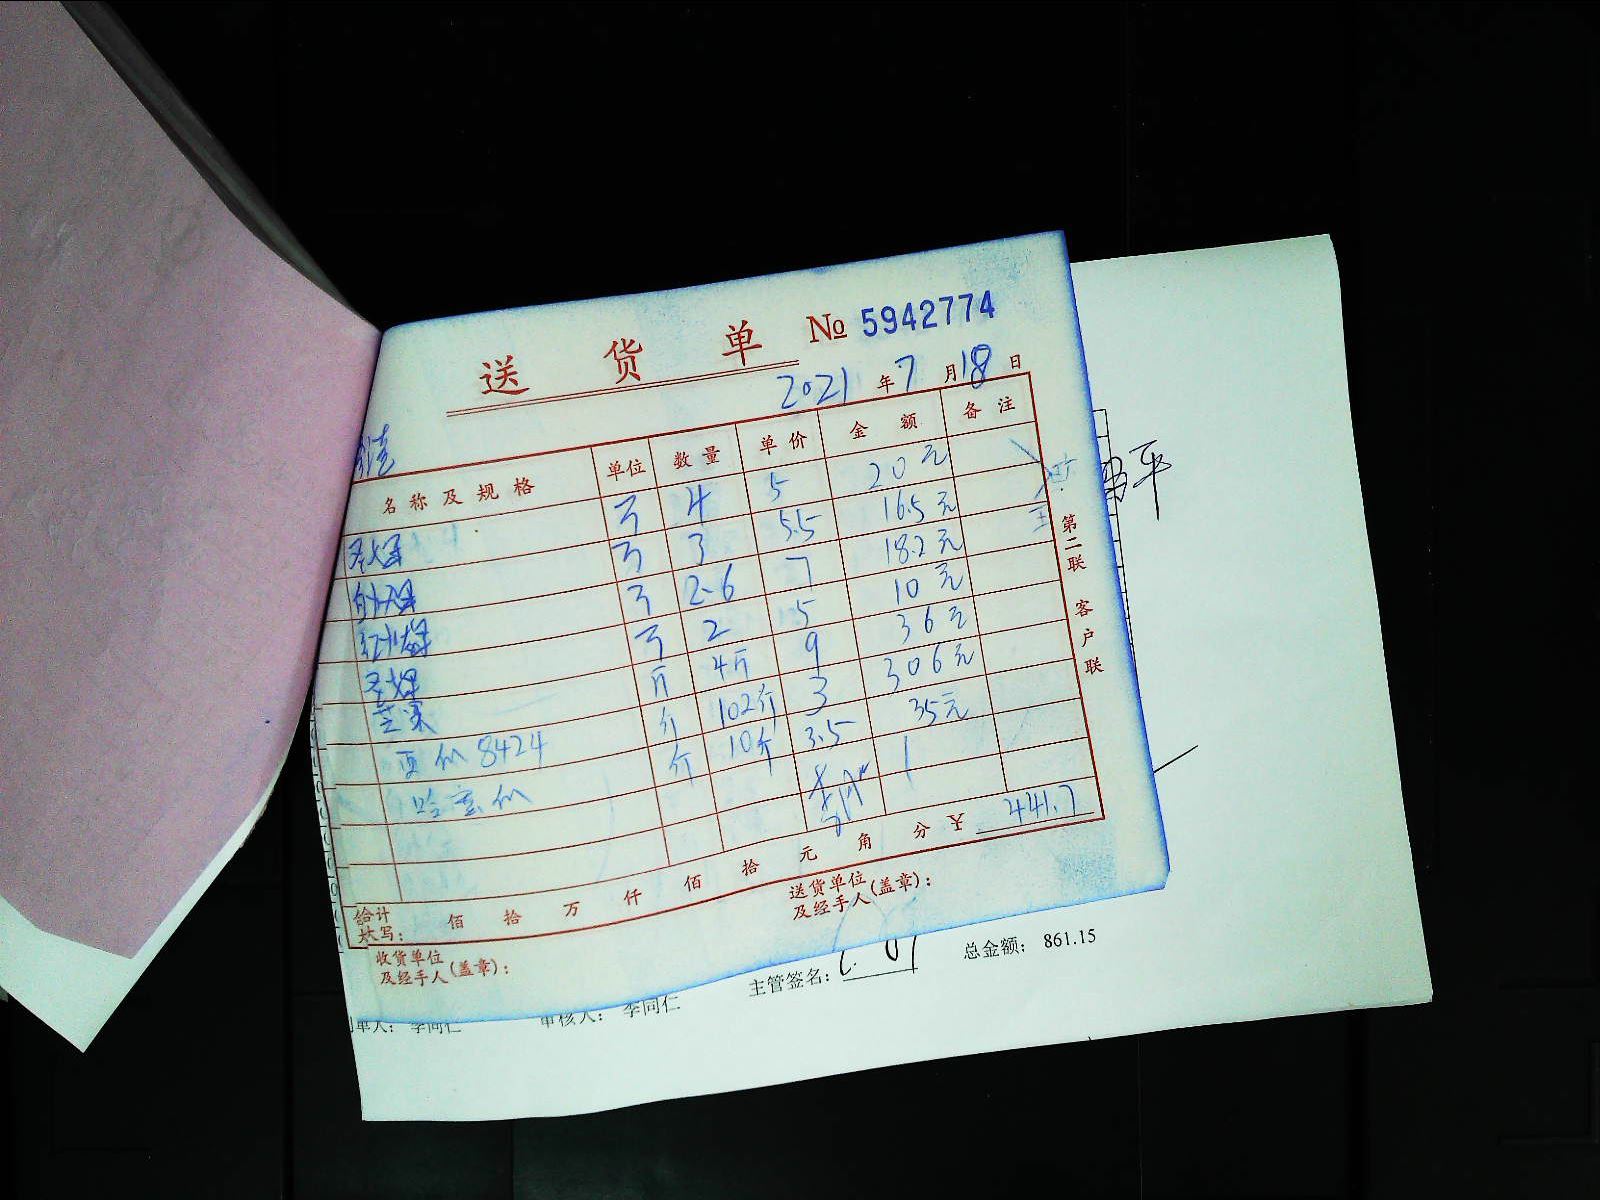 送货单 № 5942774
2021 年 7 月 18 日
名称及规格 单位 数量 单价 金额 备注
4 5 20元
3 5.5 16.5元
2.6 7 18.2元
2 5 10元
芒果 斤 4斤 9 36元
西瓜8424 斤 102斤 3 306元
哈密瓜 斤 10斤 3.5 35元
合计大写: 佰 拾 万 仟 佰 拾 元 角 分 ¥ 441.7
收货单位及经手人(盖章):
送货单位及经手人(盖章):
第二联 客户联
平
主管签名:
总金额: 861.15
单人: 李同仁
审核人: 李同仁